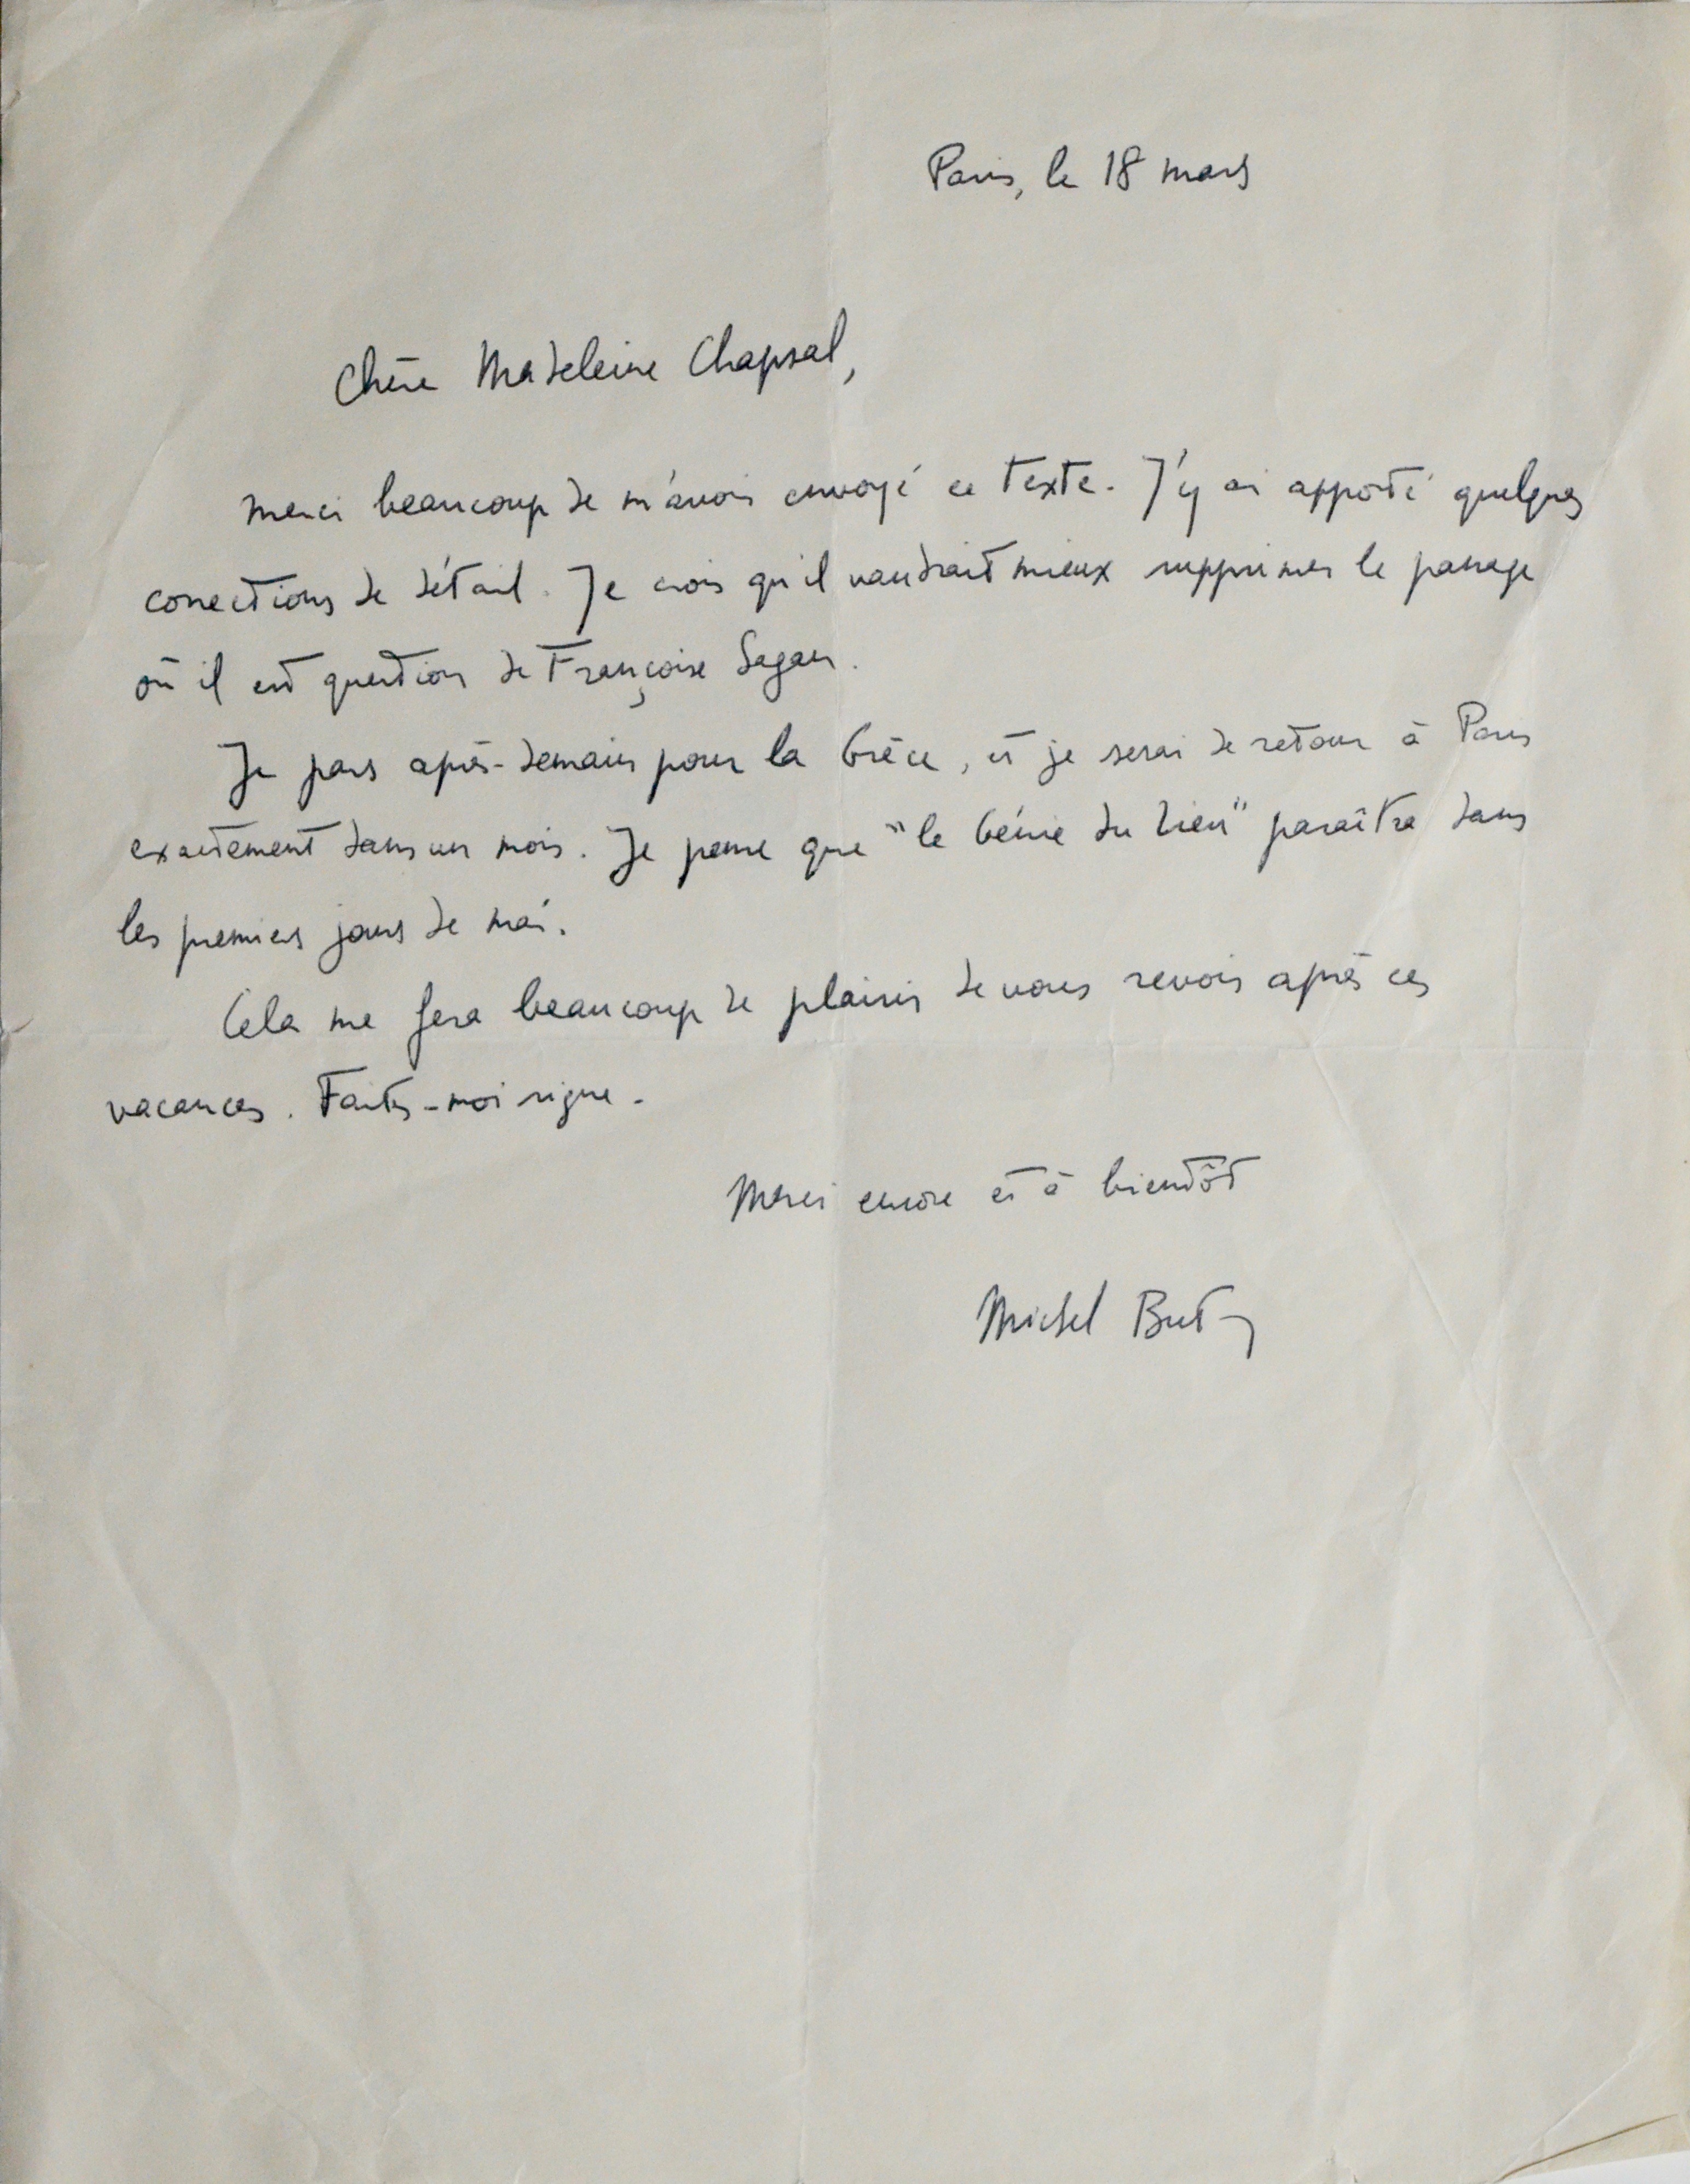 Paris, le 18 mars
Chère Madeleine Chapsal,
Merci beaucoup de m'avoir envoyé ce texte. J'y ai apporté quelques
corrections de détail. Je crois qu'il vaudrait mieux supprimer le passage
où il est question de Françoise Sagan.
Je pars après-demain pour la Grèce, et je serai de retour à Paris
exactement dans un mois. Je pense que "le Génie du Lieu" paraîtra dans
les premiers jours de mai.
Cela me fera beaucoup de plaisir de vous revoir après ces
vacances. Faites-moi signe.
Merci encore et à bientôt
Michel Butor